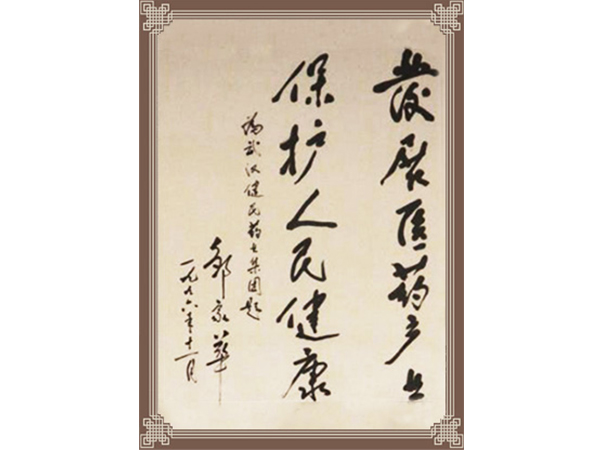 發展医药产业
保护人民健康
为武汉健民药业集团题
邹家華
一九九六年十一月